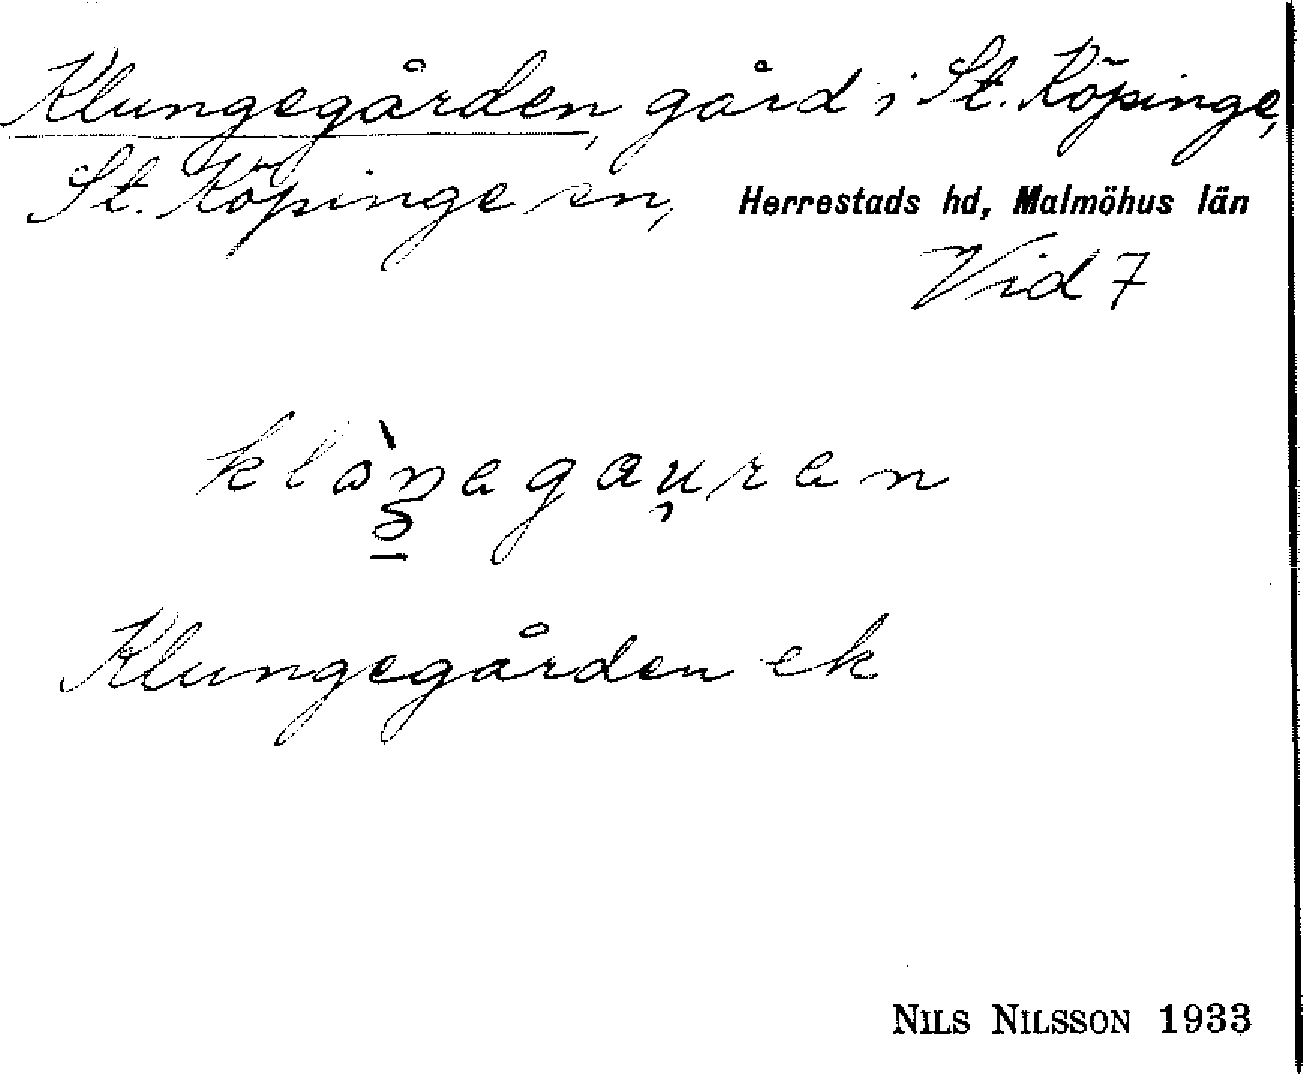 Klungegården, gård i St. Köpinge,
St. Köpinge sn, Herrestads hd, Malmöhus län
Vid 7
Klungegården ek
NILS NILSSON 1933